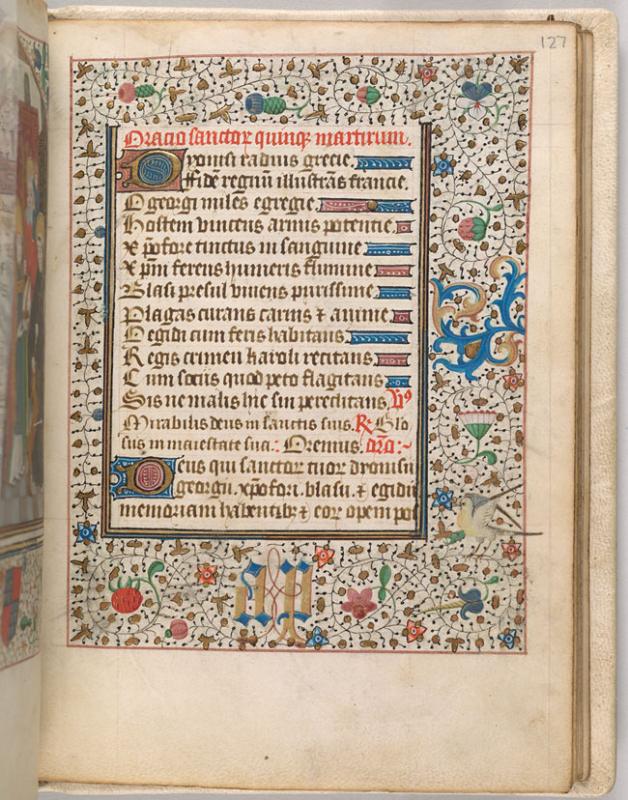 127
Oracio sanctor quinq martirum.
Dyonisi radius grecie
Fidē regnū illustrās francie.
O georgi miles egregie
Hostem vincens armis potentie
Xpōfore tinctus in sanguine
Xpm ferens humeris flumine
Blasi presul vivens purissime
Plagas curans carnis & anime
O egidi cum feris habitans
Regis crimen karoli recitans
Cum sociis quod peto flagitans
Sis ne malis hic sin pereclitans. V9
Mirabilis deus in sanctis suis. R Glo
sus in maiestate sua: Oremus. orō:
Deus qui sanctor tuor dionisii
georgii. xpōfori. blasii. & egidii
memoriam habentibz & eor opem pos